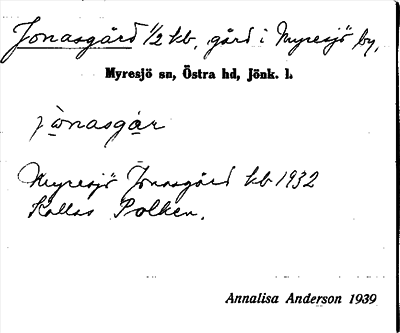 Jonasgård 1/2 kb, gård i Myresjö by,
Myresjö sn, Östra hd, Jönk. l.
jònasgår
Myresjö Jonasgård kb 1932
Kallas Polken.
Annalisa Anderson 1939